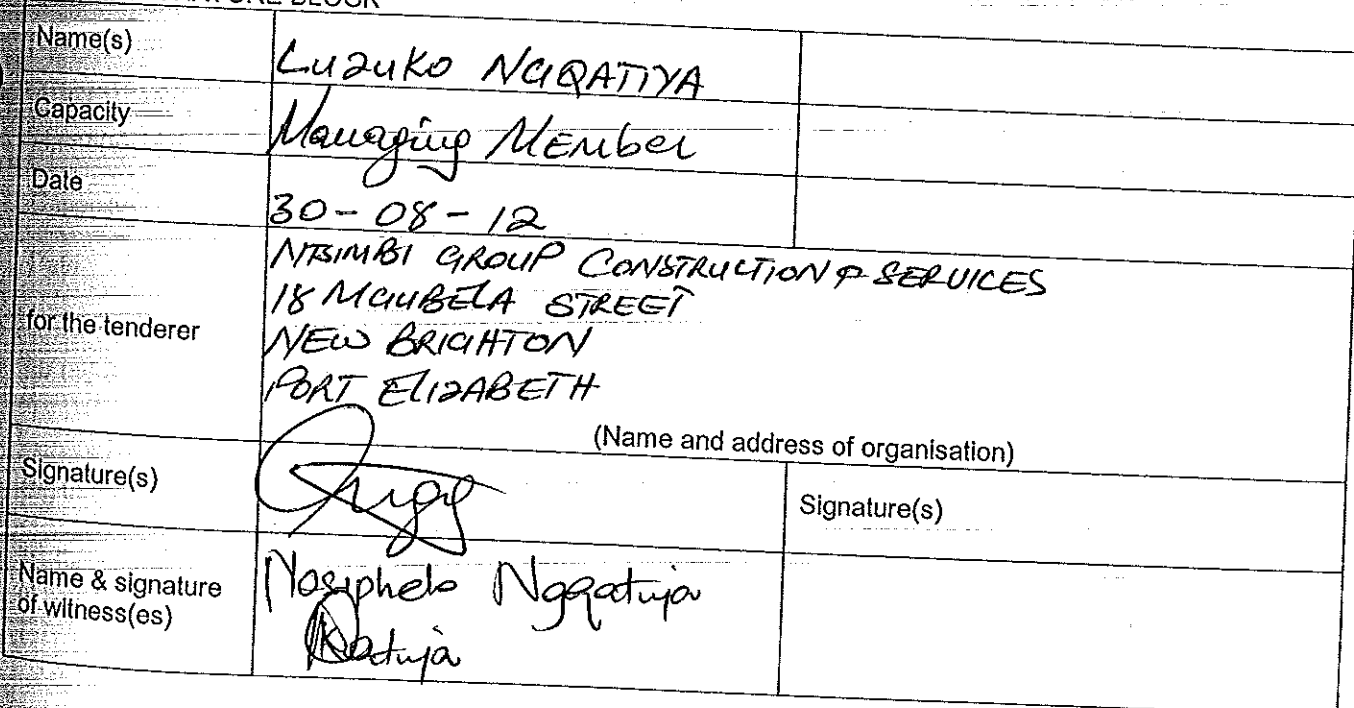 ATURE BLOCK
Name(s)
Luzuko NGQATIYA
Capacity
Managing Member
Date
30-08-12
for the tenderer
NTSIMBI GROUP CONSTRUCTION & SERVICES
18 MGUBELA STREET
NEW BRIGHTON
PORT ELIZABETH
(Name and address of organisation)
Signature(s)
Signature(s)
Name & signature
of witness(es)
Nosiphelo